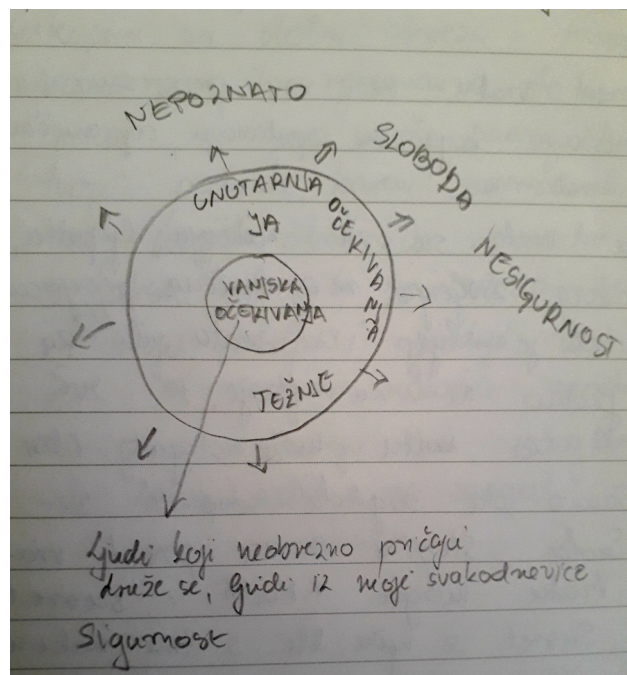 NEPOZNATO
SLOBODA
NESIGURNOST
UNUTARNJA
OČEKIVANJA
JA
VANJSKA
OČEKIVANJA
TEŽNJE
Ljudi koji neobvezno pričaju
druže se, ljudi iz moje svakodnevice
Sigurnost